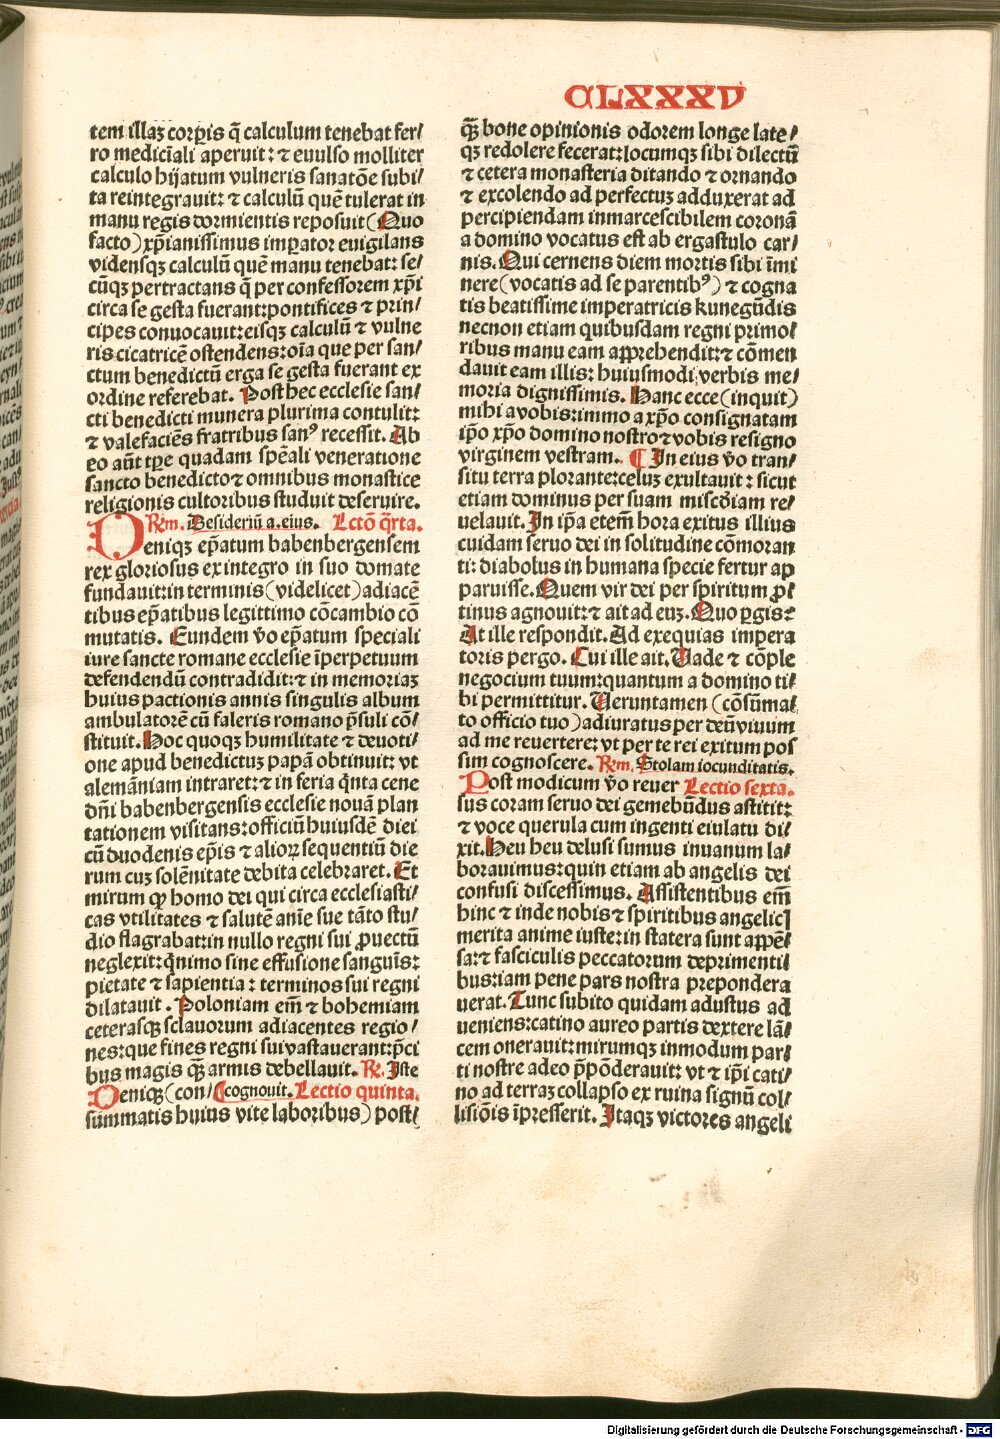 CLXXXV
tem illaꝫ corꝑis q̄ calculum tenebat fer⸗
ro medicīali aperuit: ⁊ euulso molliter
calculo hijatum vulneris sanatōe subi⸗
ta reintegrauit: ⁊ calculū quē tulerat in
manu regis dormientis reposuit (Quo
facto) xp̄ianissimus imꝑator euigilans
vidensqꝫ calculū quē manu tenebat: se⸗
cūqꝫ pertractans q̄ per confessorem xp̄i
circa se gesta fuerant: pontifices ⁊ prin⸗
cipes conuocauit: eisqꝫ calculū ⁊ vulne
ris cicatricē ostendens: oīa que per san⸗
ctum benedictū erga se gesta fuerant ex
ordine referebat. Post hec ecclesie san⸗
cti benedicti munera plurima contulit:
⁊ valefaciēs fratribus sanꝰ recessit. Ab
eo aūt tꝑe quadam spēali veneratione
sancto benedicto ⁊ omnibus monastice
religionis cultoribus studuit deseruire.
Rm̄. Desideriū a. eius. Lectō q̄rta.
Deniqꝫ ep̄atum babenbergensem
rex gloriosus ex integro in suo domate
fundauit: in terminis (videlicet) adiacē
tibus ep̄atibus legittimo cōcambio cō
mutatis. Eundem v̄o ep̄atum speciali
iure sancte romane ecclesie īperpetuum
defendendū contradidit: ⁊ in memoriaꝫ
huius pactionis annis singulis album
ambulatorē cū faleris romano p̄suli cō⸗
stituit. Hoc quoqꝫ humilitate ⁊ deuoti⸗
one apud benedictuꝫ papā obtinuit: vt
alemāniam intraret: ⁊ in feria q̄nta cene
dn̄i babenbergensis ecclesie nouā plan
tationem visitans: officiū huiusdē diei
cū duodenis ep̄is ⁊ alioꝝ sequentiū die
rum cuꝫ solēnitate debita celebraret. Et
mirum ꝙ homo dei qui circa ecclesiasti⸗
cas vtilitates ⁊ salutē anīe sue tāto stu⸗
dio flagrabat: in nullo regni sui ꝓuectū
neglexit: q̄nimo sine effusione sanguīs:
pietate ⁊ sapientia: terminos sui regni
dilatauit. Poloniam em̄ ⁊ bohemiam
ceterasqꝫ sclauorum adiacentes regio⸗
nes: que fines regni sui vastauerant: p̄ci
bus magis q̄ꝫ armis debellauit. R. Iste
Deniqꝫ (con⸗ cognouit. Lectio quinta.
sūmmatis huius vite laboribus) post⸗
q̄ꝫ bone opinionis odorem longe late⸗
qꝫ redolere fecerat: locumqꝫ sibi dilectū
⁊ cetera monasteria ditando ⁊ ornando
⁊ excolendo ad perfectuꝫ adduxerat ad
percipiendam inmarcescibilem coronā
a domino vocatus est ab ergastulo car⸗
nis. Qui cernens diem mortis sibi īmi
nere (vocatis ad se parentibꝰ) ⁊ cogna
tis beatissime imperatricis kunegūdis
necnon etiam quibusdam regni primo⸗
ribus manu eam apprehendit: ⁊ cōmen
dauit eam illis: huiusmodi verbis me⸗
moria dignissimis. Hanc ecce (inquit)
mihi a vobis: immo a xp̄o consignatam
ip̄o xp̄o domino nostro ⁊ vobis resigno
virginem vestram. ¶ In eius v̄o tran⸗
situ terra plorante: celuꝫ exultauit: sicut
etiam dominus per suam miscōiam re⸗
uelauit. In ip̄a etem̄ hora exitus illius
cuidam seruo dei in solitudine cōmoran
ti: diabolus in humana specie fertur ap
paruisse. Quem vir dei per spiritum ꝓ⸗
tinus agnouit: ⁊ ait ad euꝫ. Quo ꝑgis?
At ille respondit. Ad exequias impera
toris pergo. Cui ille ait. Vade ⁊ cōple
negocium tuum: quantum a domino ti⸗
bi permittitur. Veruntamen (cōsūma⸗
to officio tuo) adiuratus per deū viuum
ad me reuertere: vt per te rei exitum pos
sim cognoscere. Rm̄. Stolam iocunditatis.
Post modicum v̄o reuer Lectio sexta.
sus coram seruo dei gemebūdus astitit:
⁊ voce querula cum ingenti eiulatu di⸗
xit. Heu heu delusi sumus inuanum la⸗
borauimus: quin etiam ab angelis dei
confusi discessimus. Assistentibus em̄
hinc ⁊ inde nobis ⁊ spiritibus angelicꝭ
merita anime iuste: in statera sunt appē⸗
sa: ⁊ fasciculis peccatorum deprimenti⸗
bus: iam pene pars nostra preponderа
uerat. Tunc subito quidam adustus ad
ueniens: catino aureo partis dextere lā⸗
cem onerauit: mirumqꝫ inmodum par⸗
ti nostre adeo p̄pōderauit: vt ⁊ ip̄i cati⸗
no ad terraꝫ collapso ex ruina signū col⸗
lisiōis īpresserit. Itaqꝫ victores angeli
Digitalisierung gefördert durch die Deutsche Forschungsgemeinschaft - DFG